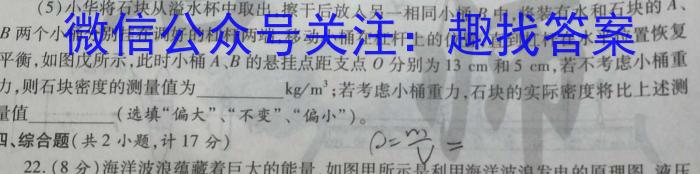 (5)小华将石块从溢水杯中取出,擦干后放入另一相同小桶B中,将装有水和石块的A、
B两个小
微信公众号关注：趣找答案
恢复
平衡,如图戊所示,此时小桶A、B的悬挂点距支点O分别为13 cm和5 cm,若不考虑小桶重
力,则石块密度的测量值为________kg/m³;若考虑小桶重力,石块的实际密度将比上述测
量值________(选填“偏大”、“不变”、“偏小”)。
四、综合题(共2小题,计17分)
ρ=m/V=
22.(8分)海洋波浪蕴藏着巨大的能量,如图甲所示是利用海洋波浪发电的原理图,液压